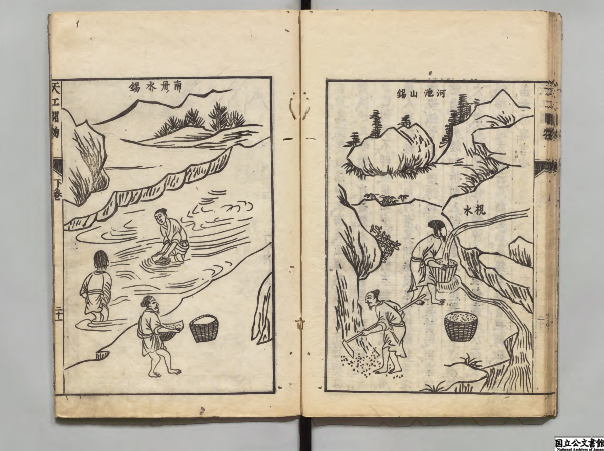 河池山錫
梘水
南丹水錫
天工開物
下卷
国立公文書館
National Archives of Japan